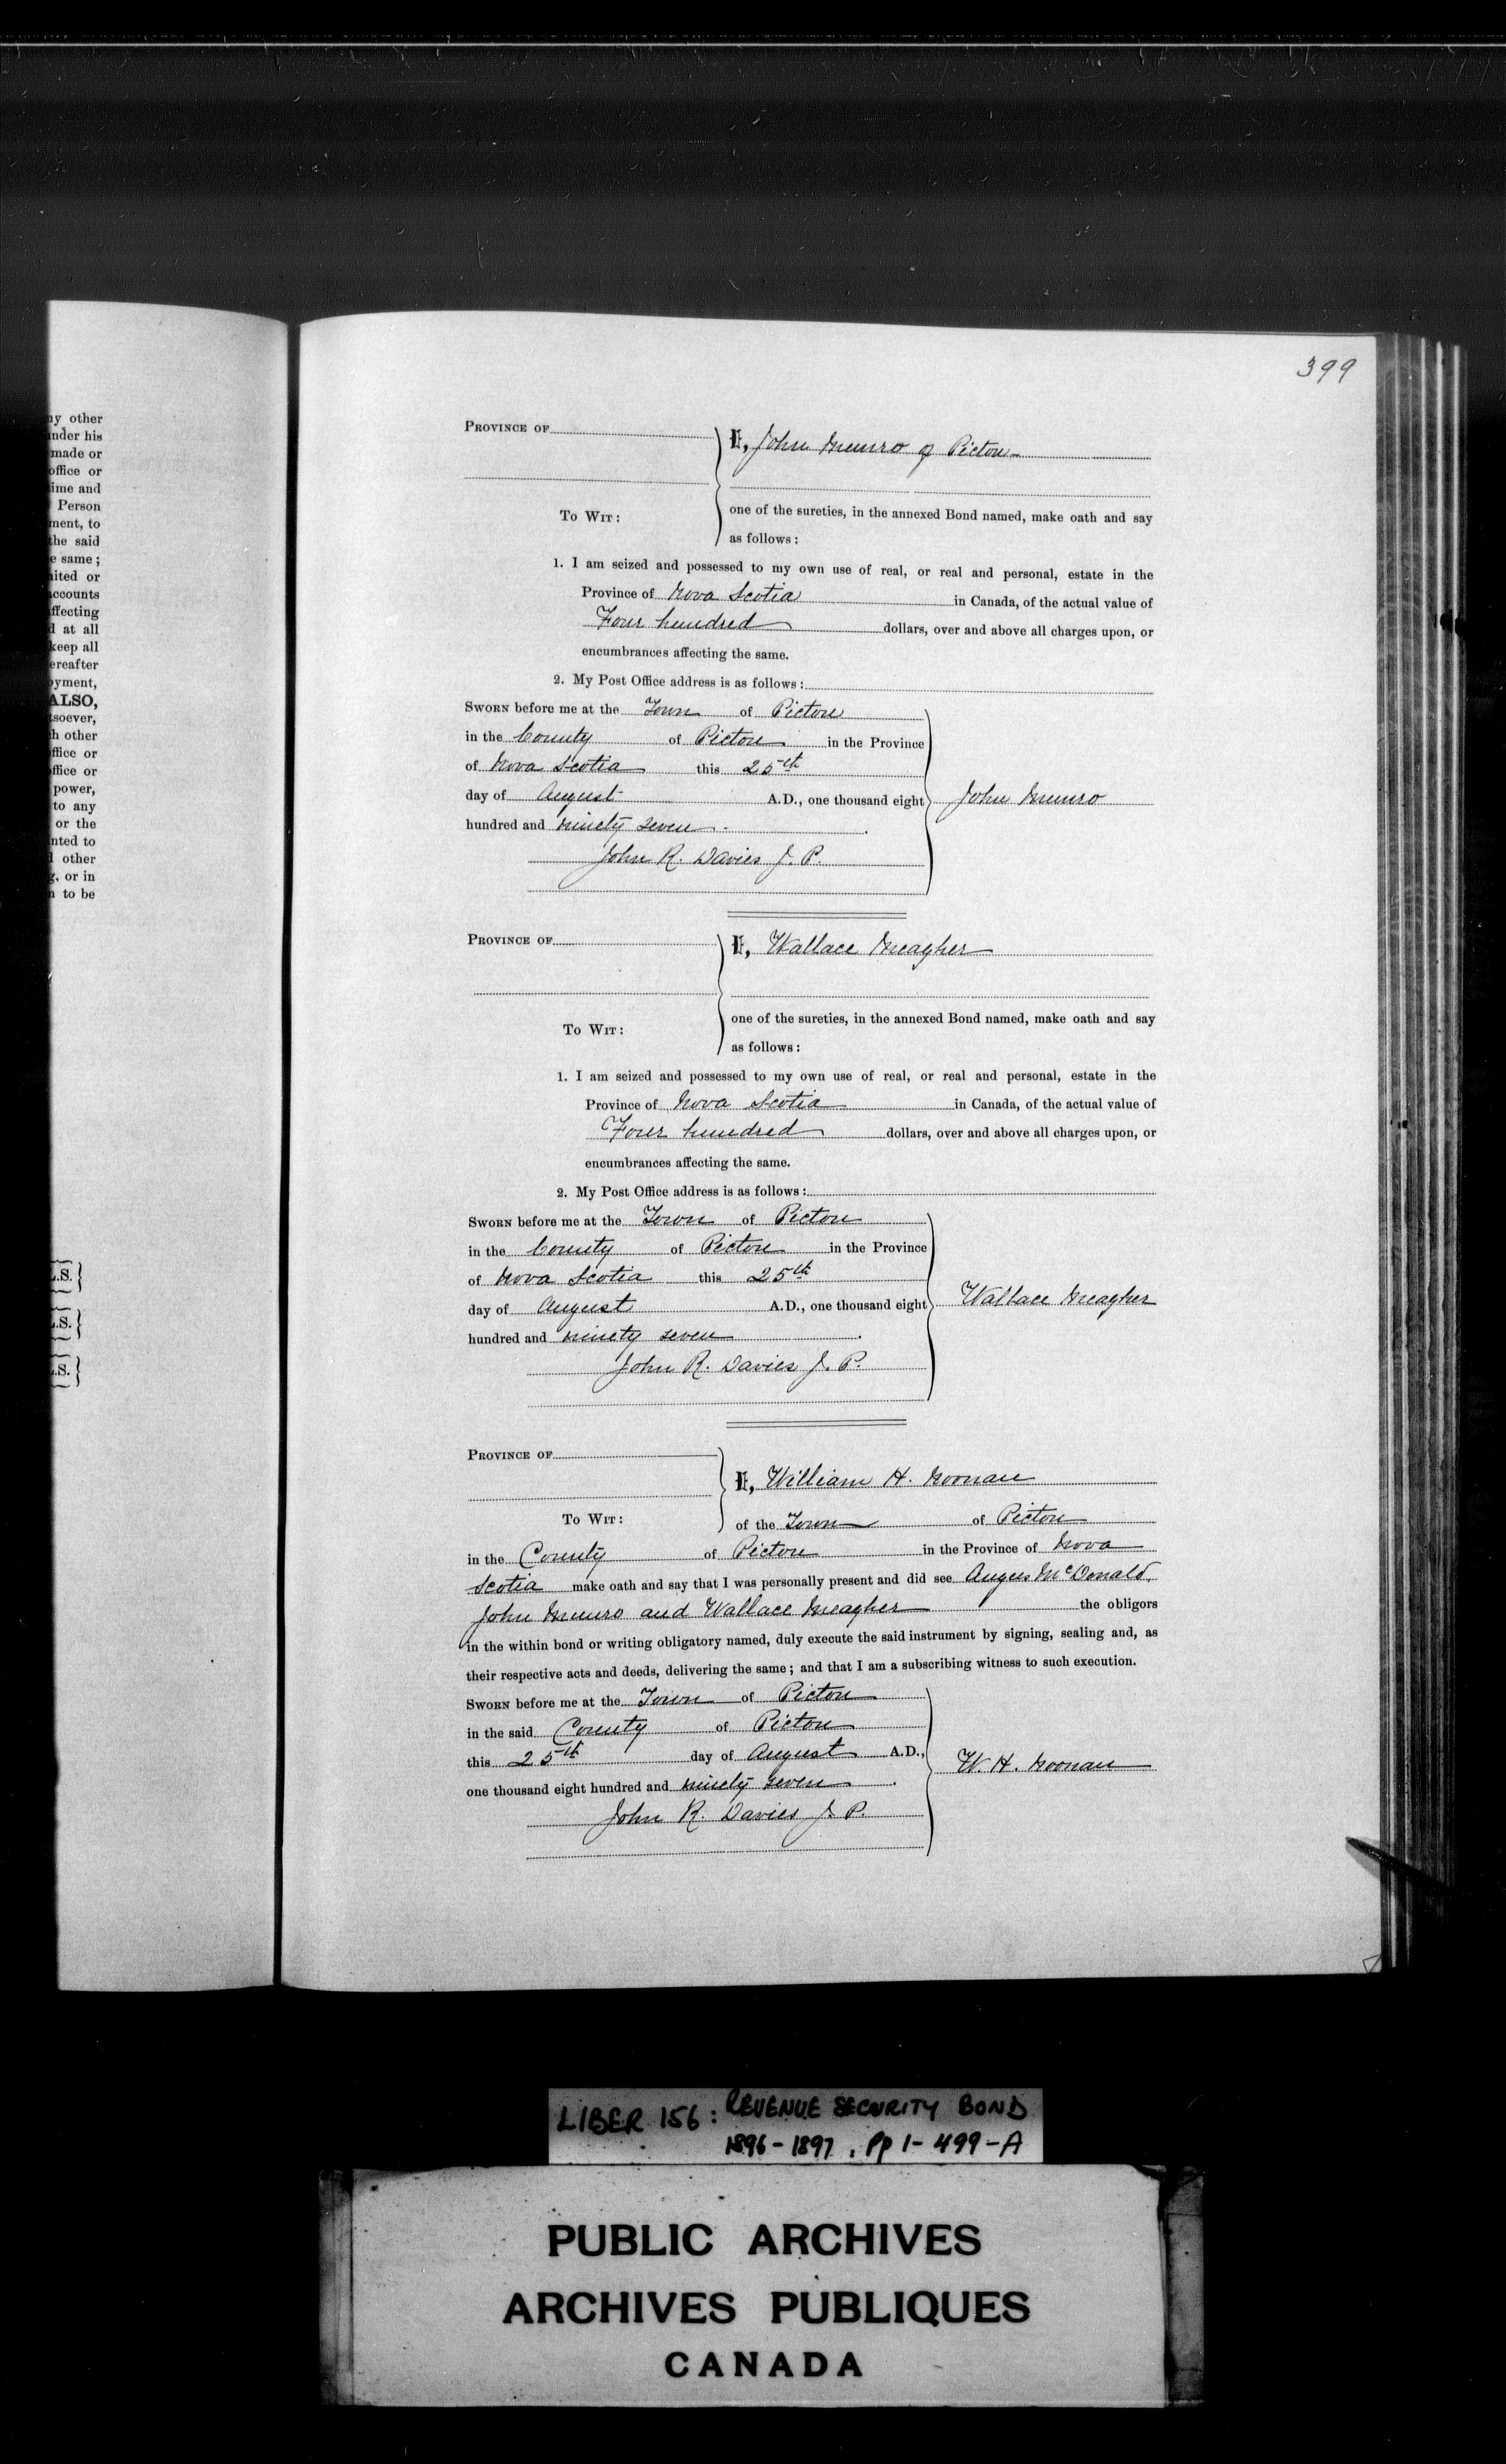 399
ny other
nder his
made or
office or
ime and
Person
ment, to
the said
e same;
ited or
ccounts
ffecting
d at all
keep all
ereafter
yment,
ALSO,
soever,
h other
ffice or
ffice or
power,
to any
or the
nted to
other
g, or in
n to be
L.S.
L.S.
L.S.
PROVINCE OF
I, John Munro of Pictou
TO WIT:
one of the sureties, in the annexed Bond named, make oath and say
as follows:
1. I am seized and possessed to my own use of real, or real and personal, estate in the
Province of Nova Scotia in Canada, of the actual value of
Four hundred dollars, over and above all charges upon, or
encumbrances affecting the same.
2. My Post Office address is as follows:
SWORN before me at the Town of Pictou
in the County of Pictou in the Province
of Nova Scotia this 25th
day of August A.D., one thousand eight
hundred and ninety seven.
John Munro
John R. Davies J. P.
PROVINCE OF
I, Wallace Meagher
TO WIT:
one of the sureties, in the annexed Bond named, make oath and say
as follows:
1. I am seized and possessed to my own use of real, or real and personal, estate in the
Province of Nova Scotia in Canada, of the actual value of
Four hundred dollars, over and above all charges upon, or
encumbrances affecting the same.
2. My Post Office address is as follows:
SWORN before me at the Town of Pictou
in the County of Pictou in the Province
of Nova Scotia this 25th
day of August A.D., one thousand eight
hundred and ninety seven.
Wallace Meagher
John R. Davies J. P.
PROVINCE OF
I, William H. Noonan
TO WIT:
of the Town of Pictou
in the County of Pictou in the Province of Nova
Scotia make oath and say that I was personally present and did see Angus McDonald,
John Munro and Wallace Meagher the obligors
in the within bond or writing obligatory named, duly execute the said instrument by signing, sealing and, as
their respective acts and deeds, delivering the same; and that I am a subscribing witness to such execution.
SWORN before me at the Town of Pictou
in the said County of Pictou
this 25th day of August A.D.,
one thousand eight hundred and ninety seven.
W. H. Noonan
John R. Davies J. P.
LIBER 156: REVENUE SECURITY BOND
1896-1897, Pp 1-499-A
PUBLIC ARCHIVES
ARCHIVES PUBLIQUES
CANADA